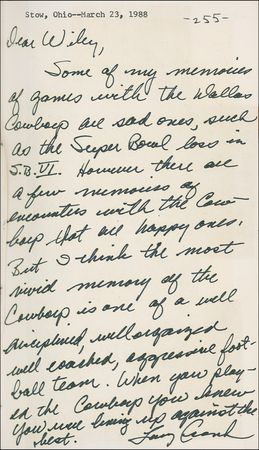 Stow, Ohio--March 23, 1988
-255-
Dear Wiley,
Some of my memories
of games with the Dallas
Cowboys are sad ones, such
as the Super Bowl loss in
S.B. VI. However there are
a few memories of
encounters with the Cow-
boys that are happy ones.
But I think the most
vivid memory of the
Cowboys is one of a well
disciplined, well organized
well coached, aggressive foot-
ball team. When you play-
ed the Cowboys you knew
you were lining up against the
best.
Larry Csonka